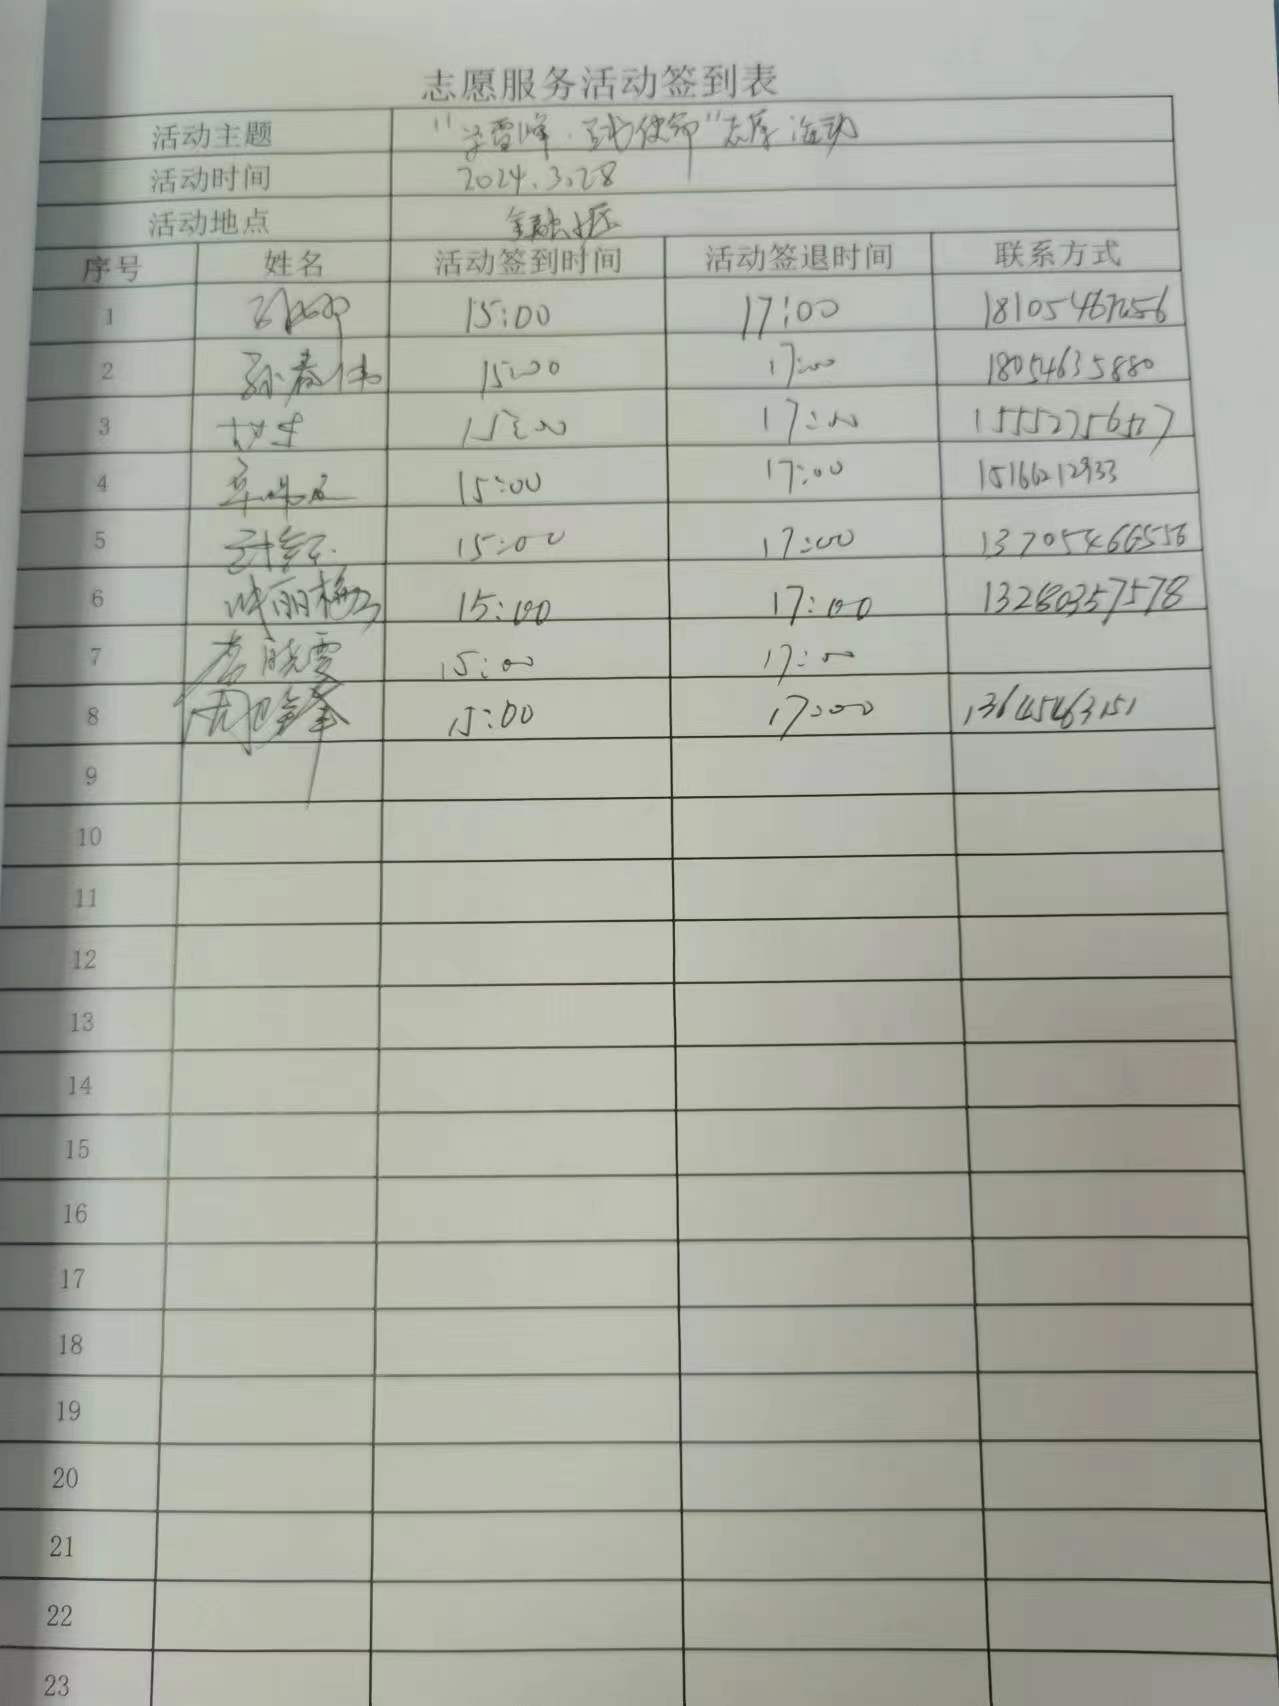 志愿服务活动签到表
活动主题 "学雷锋 志愿 活动
活动时间 2024.3.28
活动地点 金融
序号 姓名 活动签到时间 活动签退时间 联系方式
1 15:00 17:00
2 孙春伟 15:00 17:00 18054635880
3 15:00 17:00
4 15:00 17:00 15166212933
5 15:00 17:00 13705466556
6 丽梅 15:00 17:00 13280357578
7 晓雯 15:00 17:00
8 周 锋 15:00 17:00 13645463151
9
10
11
12
13
14
15
16
17
18
19
20
21
22
23